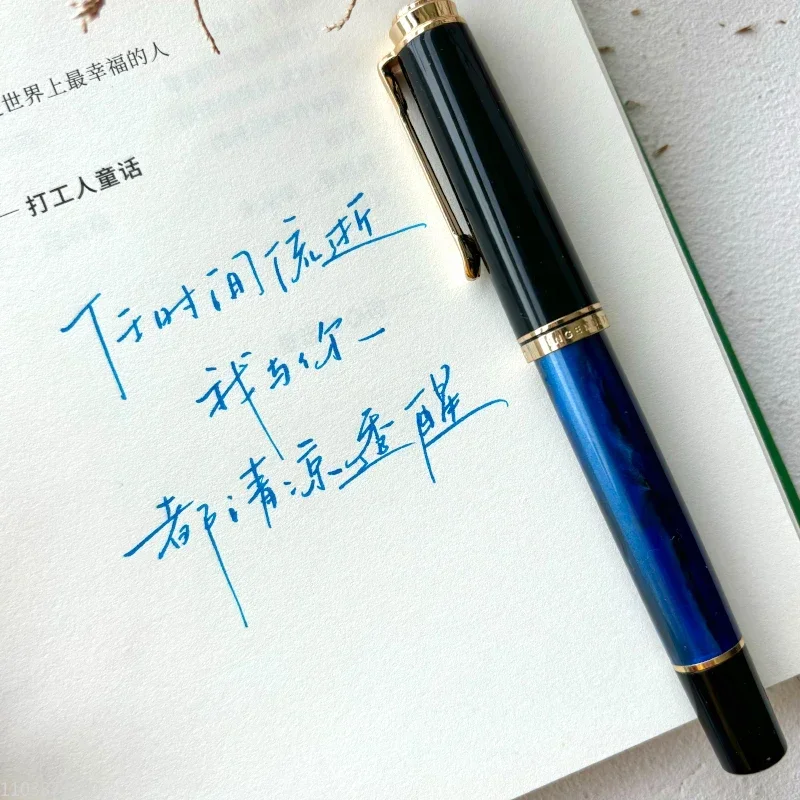 世界上最幸福的人
— 打工人童话
于时间流逝
我与你
都清凉透醒